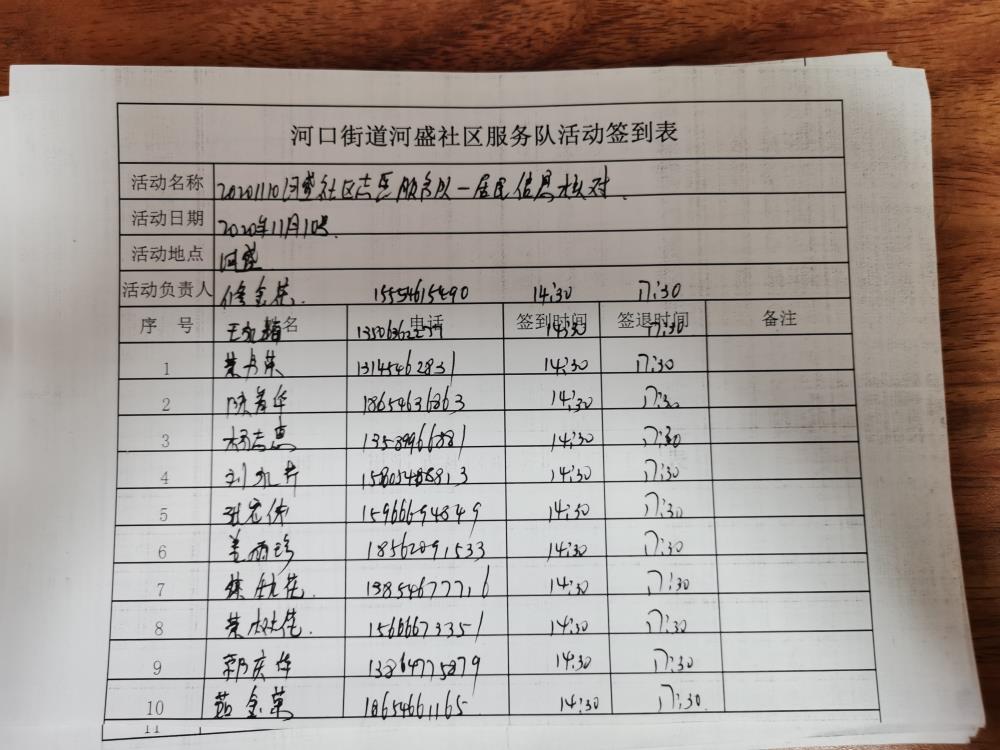 河口街道河盛社区服务队活动签到表
活动名称 20201110河盛社区志愿服务队一居民信息核对.
活动日期 2020年11月10号.
活动地点 河盛
活动负责人 修金英. 15554615490 14:30 17:30
序 号 姓名 电话 签到时间 签退时间 备注
14:30 17:30
1 13145462831 14:30 17:30
2 18654636863 14:30 17:30
3 杨志惠 14:30 17:30
4 14:30 17:30
5 15966694849 14:30 17:30
6 盖丽珍 18562091533 14:30 17:30
7 13854677716 14:30 17:30
8 15666673351 14:30 17:30
9 郭庆华 13864775879 14:30 17:30
10 18654661165. 14:30 17:30
11